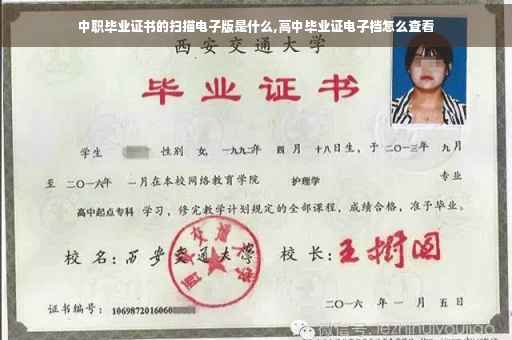 中职毕业证书的扫描电子版是什么,高中毕业证电子档怎么查看
西安交通大学
毕业证书
学生 性别 女, 一九九二年 四月 十八日生, 于 二〇一三年 九月
至 二〇一六年 一月在本校网络教育学院 护理学 专业
高中起点专科 学习, 修完教学计划规定的全部课程, 成绩合格, 准予毕业。
校名: 西安交通大学 校长: 王树国
证书编号: 1069872016060
二〇一六年 一月 五日
微信号: jiezhihuiyoujiao